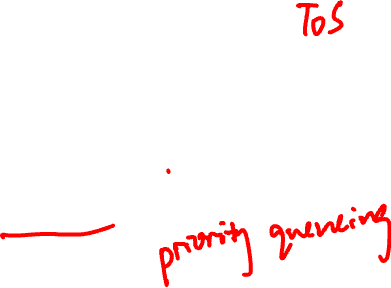 ToS
priority queueing